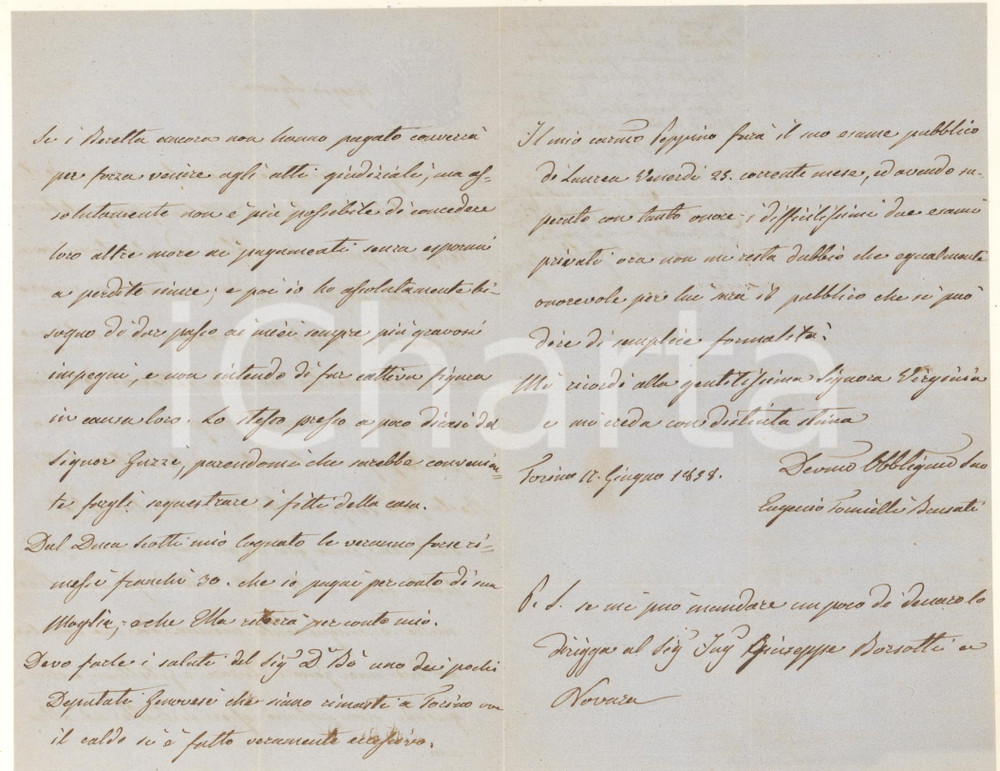 Se i Beretta ancora non hanno pagato converrà
per forza venire agli atti giudiziali, ma as-
solutamente non è più possibile di concedere
loro altre more ai pagamenti senza espormi
a perdite sicure; e poi io ho assolutamente bi-
sogno di dar passo ai miei sempre più gravosi
impegni, e non intendo di far cattiva figura
in causa loro. Lo stesso presso a poco dicasi del
Signor Guzzi, parendomi che sarebbe convenien-
te fargli sequestrare i fitti della casa.
Dal Duca Scotti mio Cognato le verranno forse ri-
messi franchi 30. che io pagai per conto di sua
Moglie, e che Ella riterrà per conto mio.
Devo farle i saluti del Sigr Dr Bò uno dei pochi
Deputati Genovesi che siano rimasti a Torino ove
il caldo si è fatto veramente eccessivo.
Il mio carmo Peppino farà il suo esame pubblico
di Laurea Venerdì 25. corrente mese, ed avendo su-
perato con tanto onore i difficilissimi due esami
privati ora non mi resta dubbio che egualmente
onorevole per lui sarà il pubblico che si può
dire di semplice formalità.
Mi ricordi alla gentilissima Signora Virginia
e mi creda con distinta stima
Torino 17. Giugno 1858.
Devmo Obbligmo Suo
Eugenio Tornielli Brusati
P. S. se mi può mandare un poco di denaro lo
dirigga al Sigr Ingr Giuseppe Borsotti a
Novara
iCharta